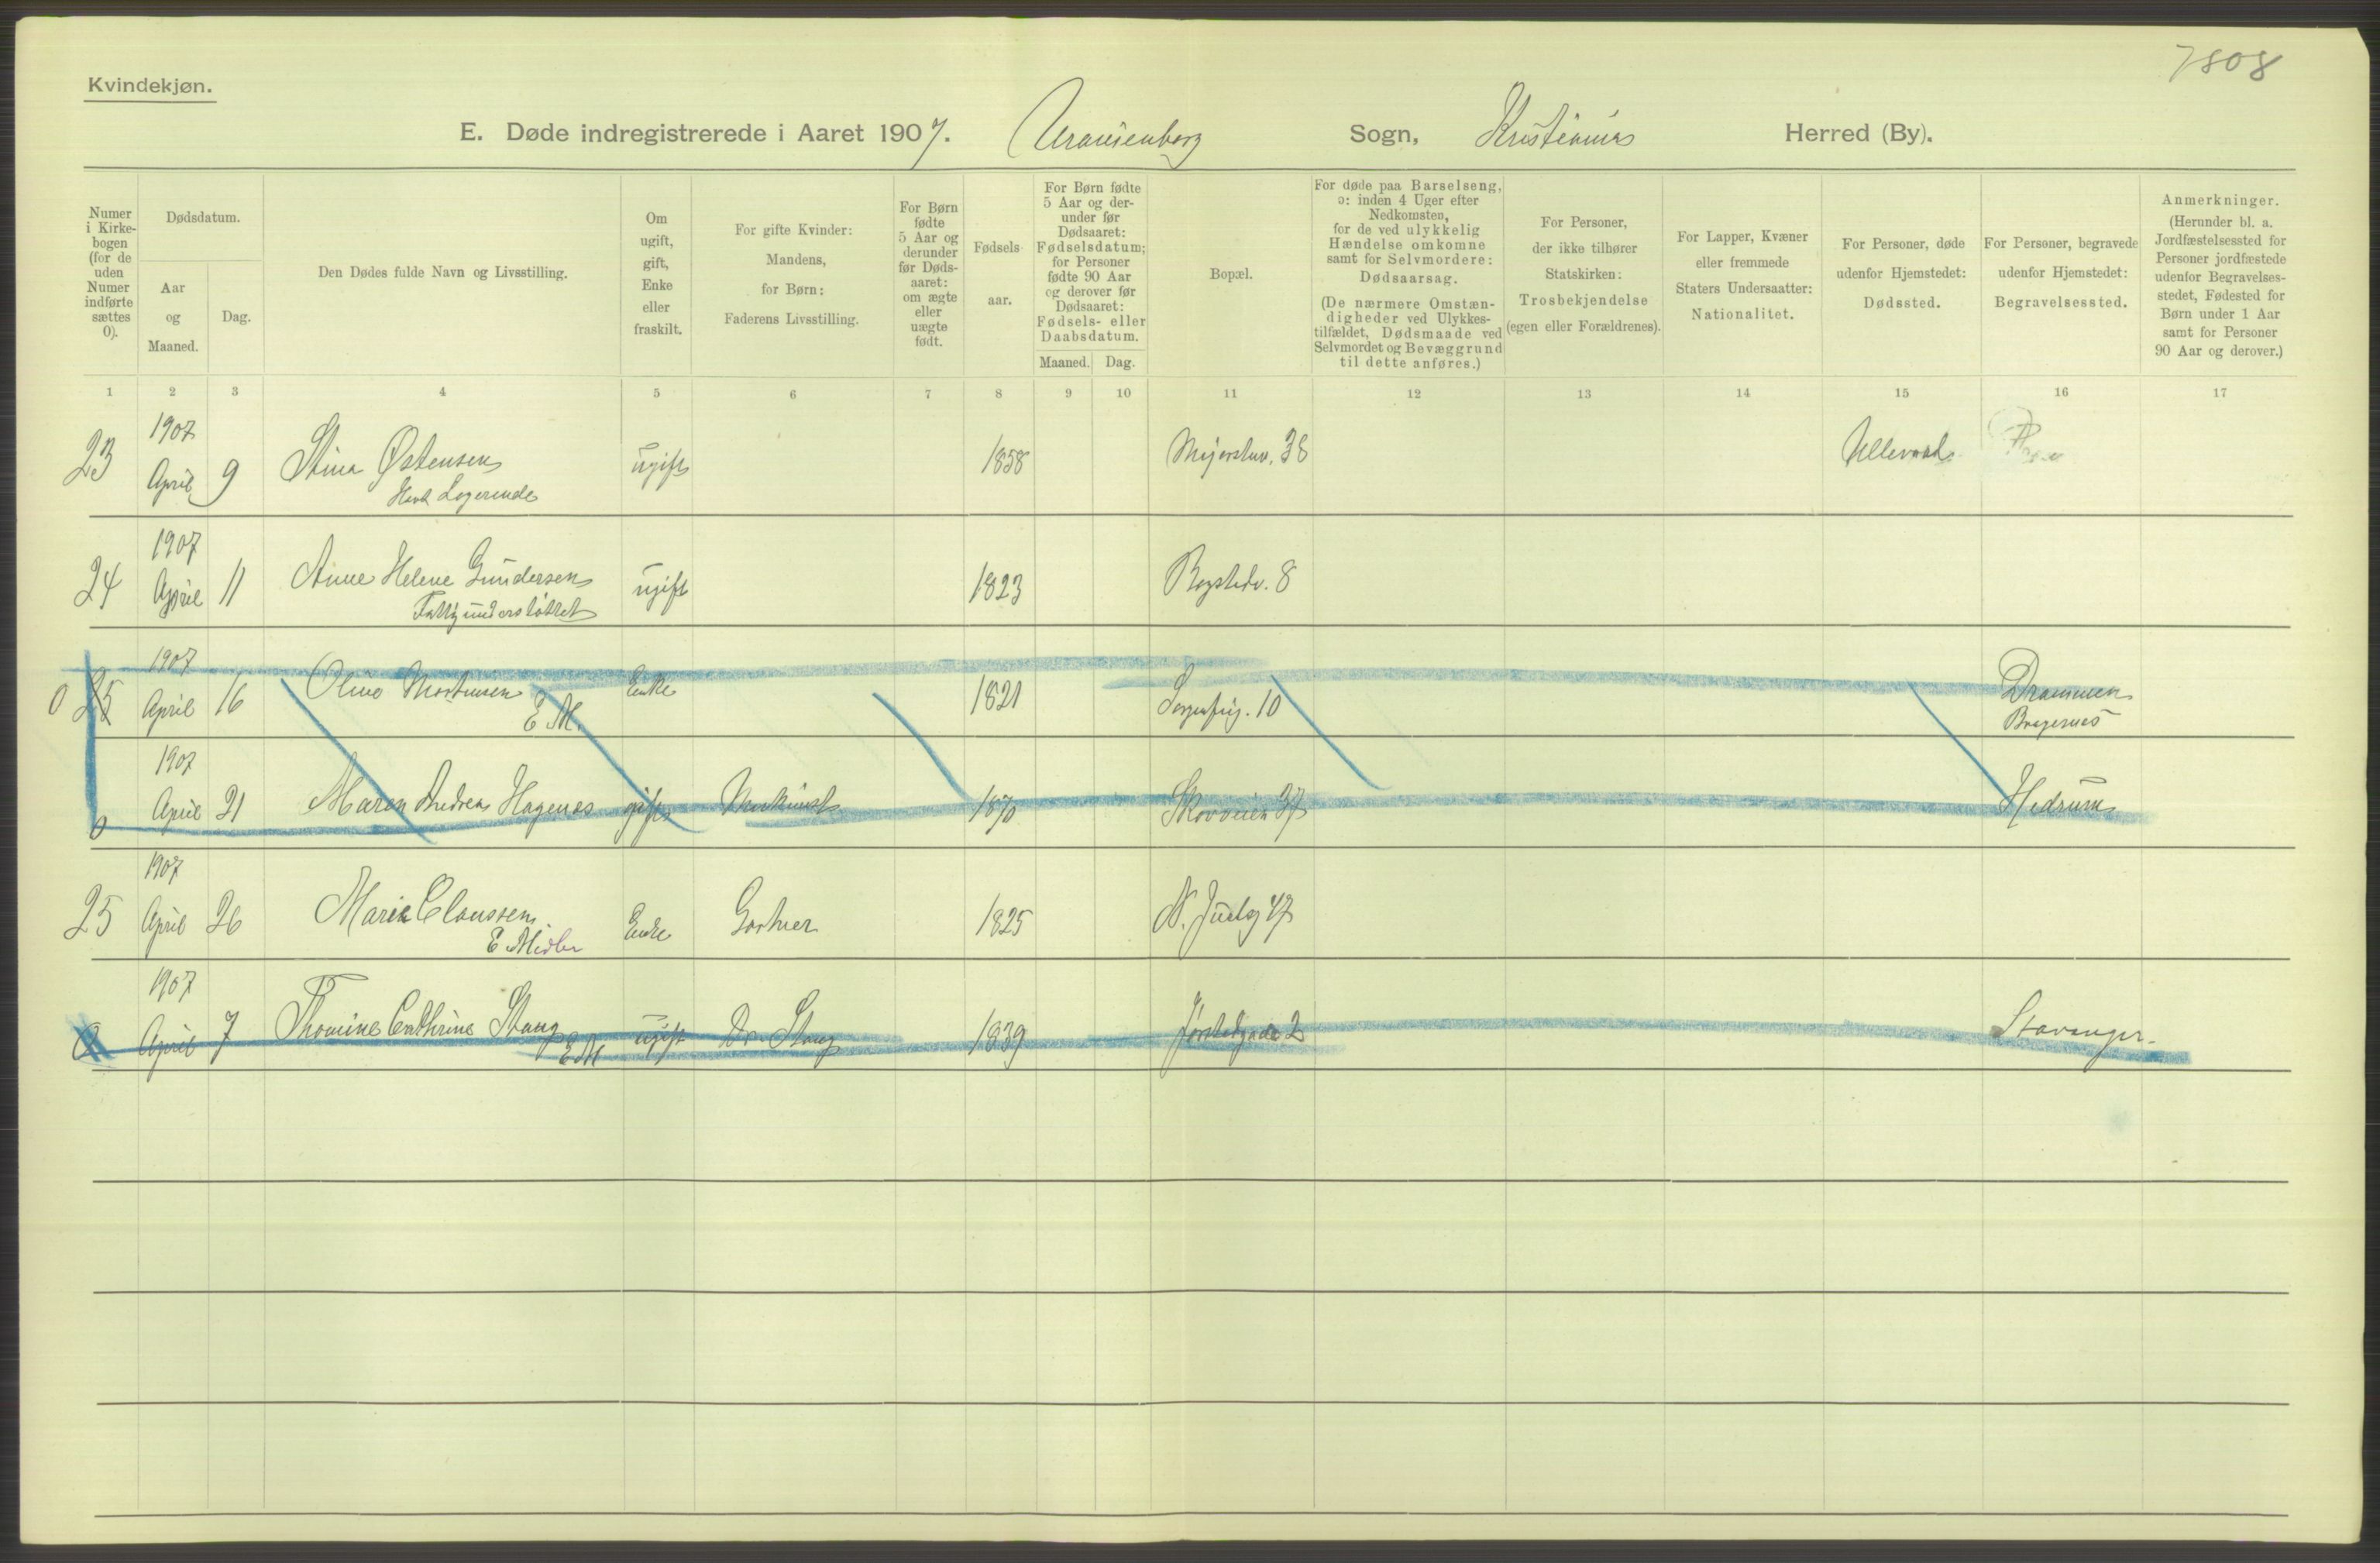 7808
Kvindekjøn.
E. Døde indregistrerede i Aaret 1907. Uranienborg Sogn, Kristiania Herred (By).
Numer i Kirke-bogen (for de uden Numer indførte sættes 0).
Dødsdatum.
Aar og Maaned.
Dag.
Den Dødes fulde Navn og Livsstilling.
Om ugift, gift, Enke eller fraskilt.
For gifte Kvinder: Mandens, for Børn: Faderens Livsstilling.
For Børn fødte 5 Aar og derunder før Døds-aaret: om ægte eller uægte født.
Fødsels aar.
For Børn fødte 5 Aar og der-under før Dødsaaret: Fødselsdatum; for Personer fødte 90 Aar og derover før Dødsaaret: Fødsels- eller Daabsdatum.
Maaned. Dag.
Bopæl.
For døde paa Barselseng, ɔ: inden 4 Uger efter Nedkomsten, for de ved ulykkelig Hændelse omkomne samt for Selvmordere: Dødsaarsag.
(De nærmere Omstæn-digheder ved Ulykkes-tilfældet, Dødsmaade ved Selvmordet og Bevæggrund til dette anføres.)
For Personer, der ikke tilhører Statskirken: Trosbekjendelse (egen eller Forældrenes).
For Lapper, Kvæner eller fremmede Staters Undersaatter: Nationalitet.
For Personer, døde udenfor Hjemstedet: Dødssted.
For Personer, begravede udenfor Hjemstedet: Begravelsessted.
Anmerkninger. (Herunder bl. a. Jordfæstelsessted for Personer jordfæstede udenfor Begravelses-stedet, Fødested for Børn under 1 Aar samt for Personer 90 Aar og derover.)
1 2 3 4 5 6 7 8 9 10 11 12 13 14 15 16 17
1907
23 April 9 Stina Østensen ugift 1858 Majorstuv. 38 Ullevaal
Logerende
1907
24 April 11 Anne Helene Gundersen ugift 1823 Bogstadv. 8
Fattigunderstøttet
1907
0 25 April 16 Oline Mortensen Enke 1821 Sorgenfrig. 10 Drammen
E M. Bragernes
1907
0 April 21 Maren Andrea Hagenes gift Maskinist 1870 Skovveien 37 Hedrum
1907
25 April 26 Marie Claussen Enke Gartner 1825 N. Juelsg 47
E. Midler
1907
0 April 7 Thomine Cathrine Stang ugift Dr. Stang 1839 Jørstadgade 2 Stavanger.
E M